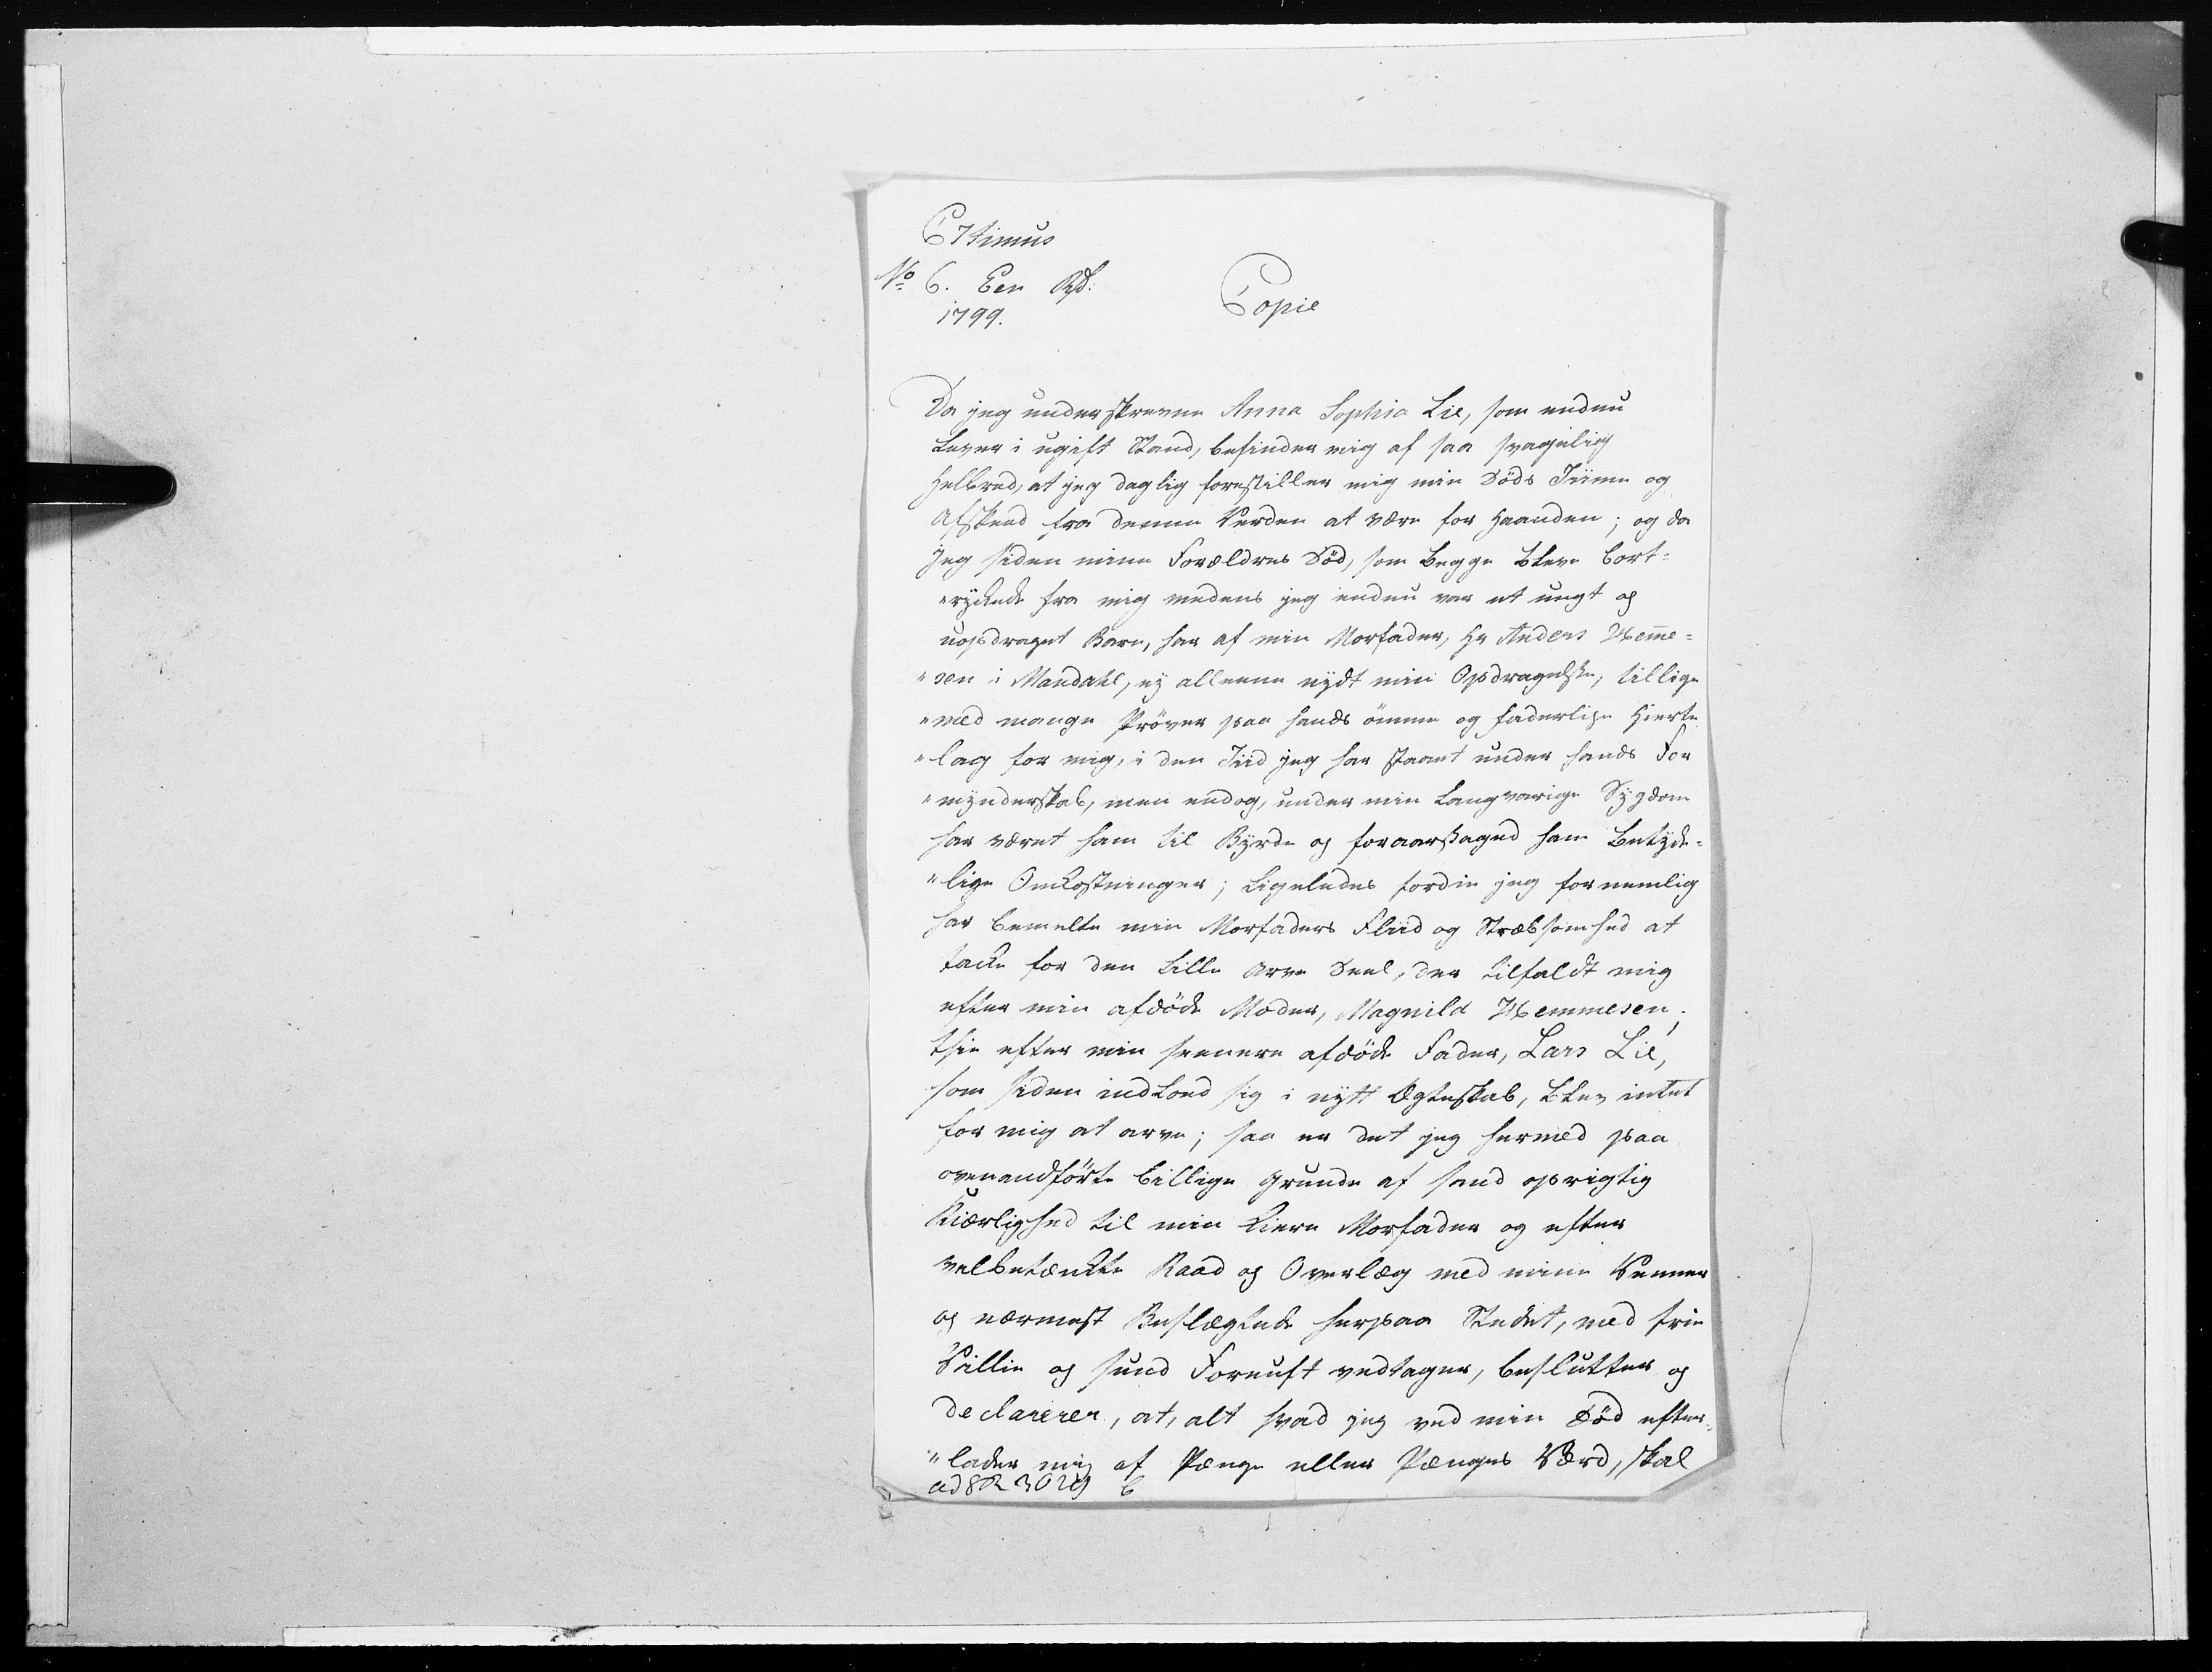 C 7timus
No 6. Een Rd:
1799.
Copie
Da jeg underskrevne Anna Sophia Lie, som endnu
Lever i ugift Stand, befinder mig af saa svagelig
Helbred, at jeg daglig forestiller mig min Döds Tiime og
Afskeed fra denne Verden at være for Haanden; og da
jeg siden mine Forældres Död, som begge bleve bort-
"rÿckede fra mig medens jeg endnu var et ungt og
uopdraget Barn, har af min Morfader, Hr Anders Wem̄e-
"sen i Mandahl, ej alleene nydt min Opdragelse, tillige
"med mange Pröver paa hands ömme og faderlige Hierte
"lag for mig, i den Tiid jeg har staaet under hands For
"mynderskab, men endog, under min Langvarige Sÿgdom
har været ham til Bÿrde og foraarsaged ham betÿde-
"lige Omkostninger; Ligeledes fordie jeg fornemlig
har bemelte min Morfaders Fliid og Stræbsomhed at
tacke for den Lille Arve Deel, der tilfaldt mig
efter min afdöde Moder, Magnild Wemmesen;
thie efter min seenere afdöde Fader, Lars Lie,
som siden indLoed sig i nytt Ægteskab, blev intet
for mig at arve; saa er det jeg hermed paa
ovenandförte billige Grunde af sand oprigtig
Kiærlighed til min kiere Morfader og efter
velbetænckte Raad og Overlæg med mine Venner
og nærmest Beslægtede herpaa Stedet, med frie
Villie og sund Fornuft vedtager, beslutter og
declarerer, at, alt hvad jeg ved min Död efter-
"lader mig af Penge eller Penges Værd, skal
ad 8R 3029 b